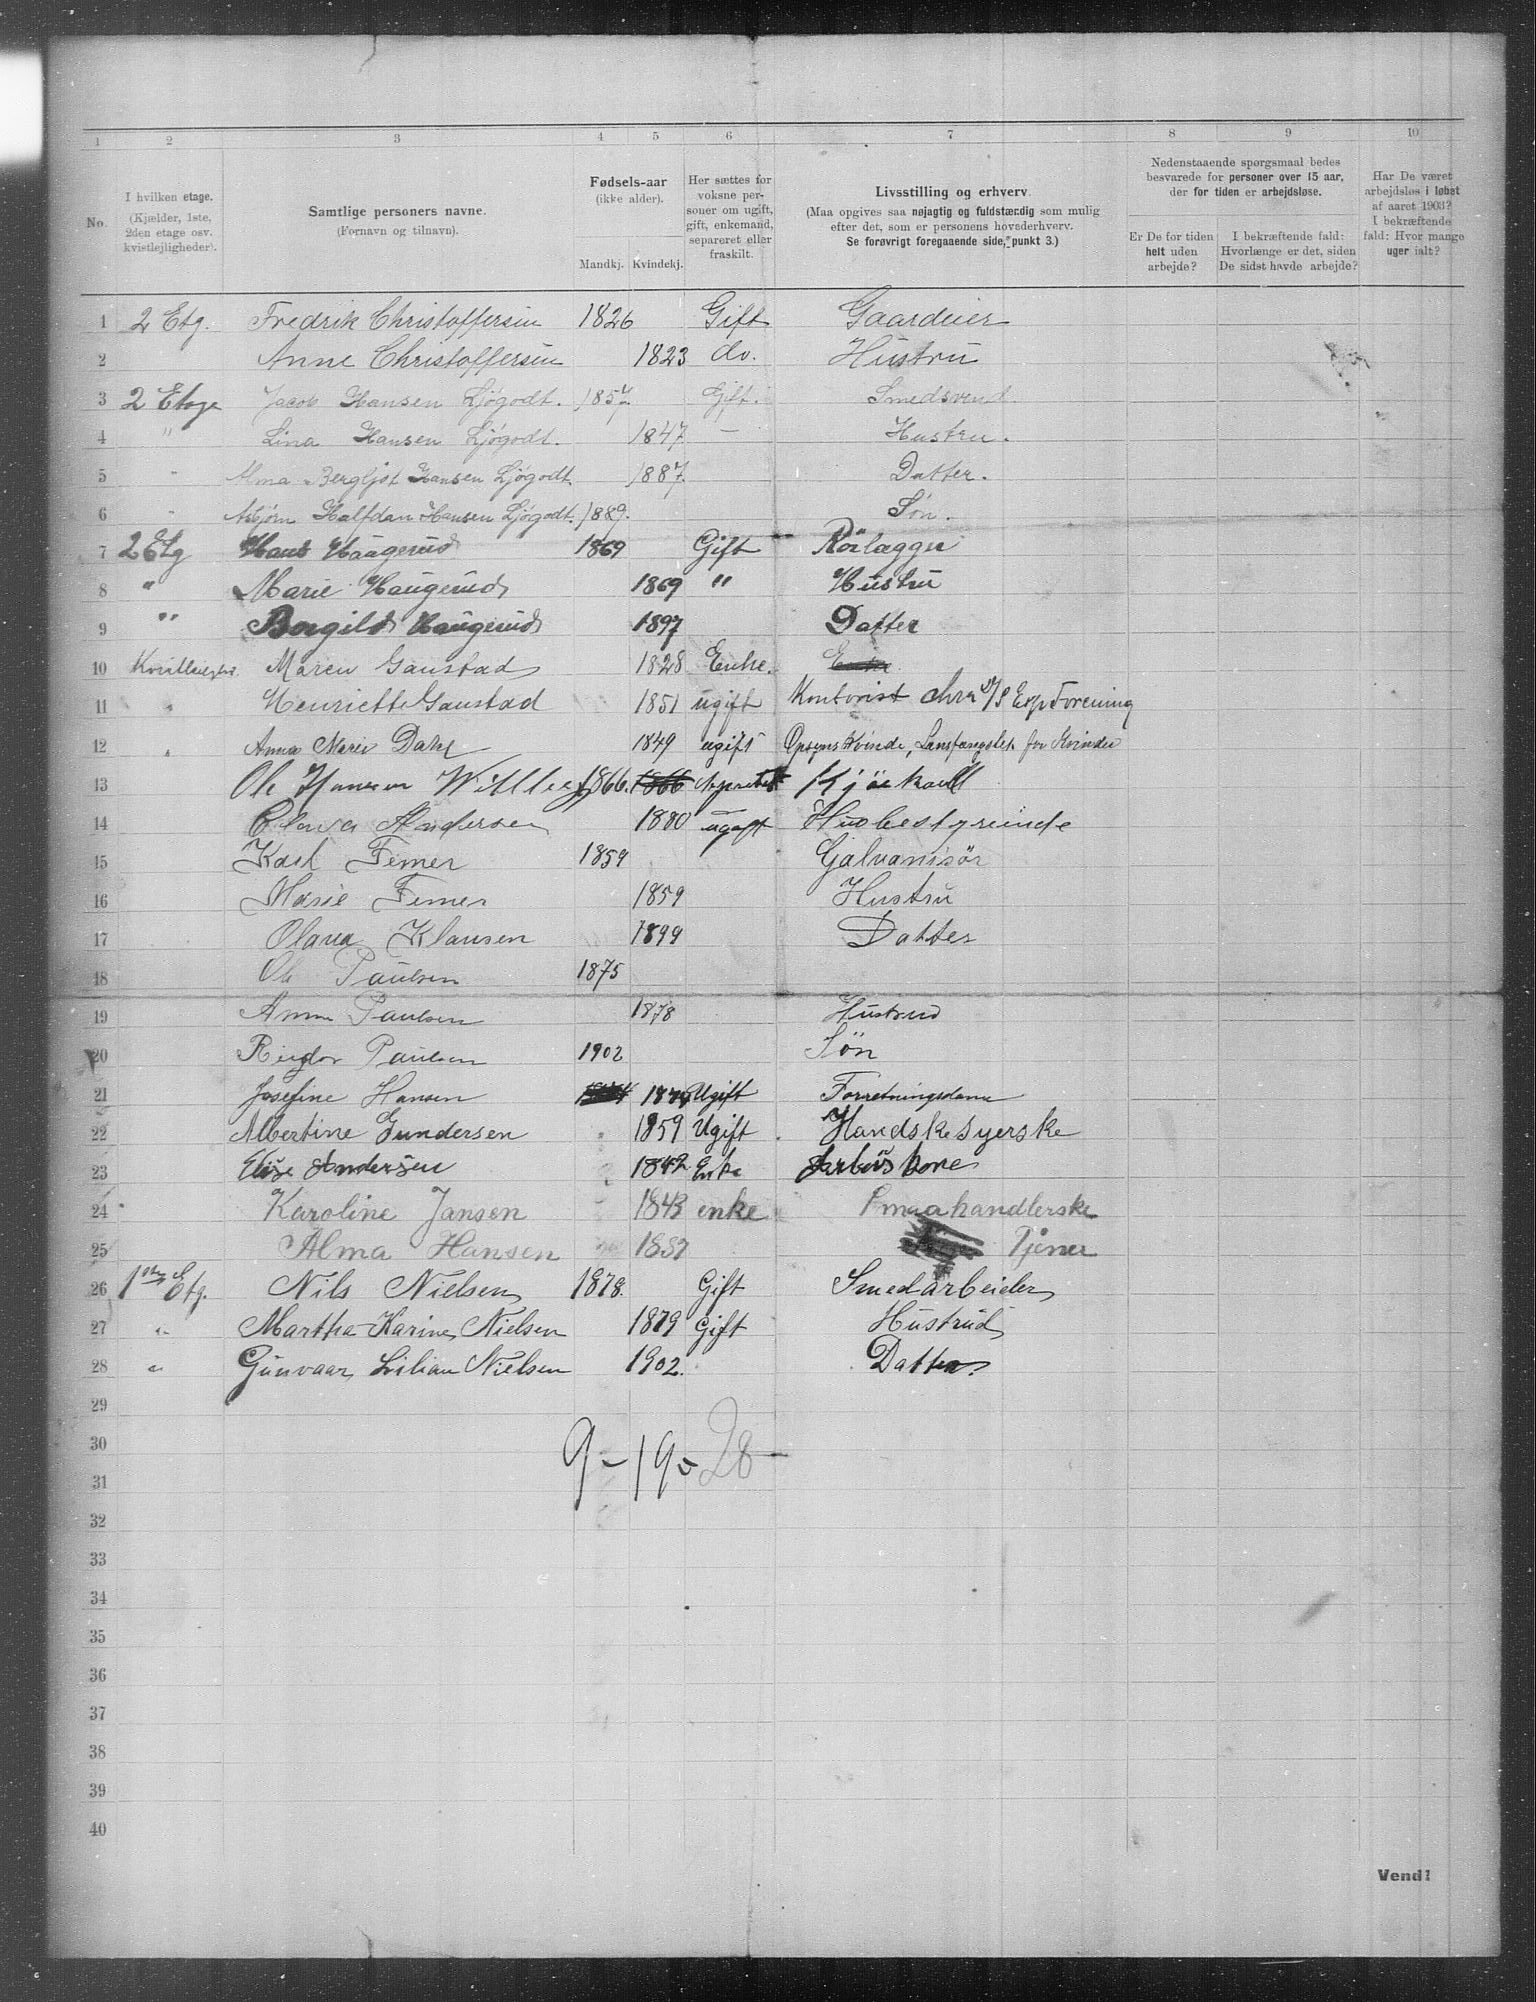 1 2 3 4 5 6 7 8 9 10
No.
I hvilken etage. (Kjælder, 1ste, 2den etage osv. kvistlejligheder).
Samtlige personers navne. (Fornavn og tilnavn).
Fødsels-aar (ikke alder).
Mandkj. Kvindekj.
Her sættes for voksne personer om ugift, gift, enkemand, separeret eller fraskilt.
Livsstilling og erhverv. (Maa opgives saa nøjagtig og fuldstændig som mulig efter det, som er personens hovederhverv. Se forøvrigt foregaaende side, punkt 3.)
Nedenstaaende spørgsmaal bedes besvarede for personer over 15 aar, der for tiden er arbejdsløse.
Er De for tiden helt uden arbejde?
I bekræftende fald: Hvorlænge er det, siden De sidst havde arbejde?
Har De været arbejdsløs i løbet af aaret 1903? I bekræftende fald: Hvor mange uger ialt?
1 2 Etg. Fredrik Christoffersen 1826 Gift Gaardeier
2 Anne Christoffersen 1823 do. Hustru
3 2 Etage Jacob Hansen Ljögodt. 1857 Gift. Smedsvend.
4 " Lina Hansen Ljögodt. 1847 – Hustru.
5 " Alma Bergljot Hansen Ljögodt 1887. Datter.
6 " Asbjörn Halfdan Hansen Ljögodt. 1889. Sön.
7 2 Etg Hans Haugerud 1869 Gift Rörlægger
8 " Marie Haugerud 1869 " Hustru
9 " Borgild Haugerud 1897 Datter
10 Maren Ganstad 1828 Enke.
11 " Henriette Ganstad 1851 ugift Kontorist Forening
12 " Anna Marie Dahl 1849 ugift Opsynskvinde, for Kvinder
13 Ole Hansen 1866. 1866
14 Olava Andersen 1880 ugift Husbestyrinde
15 Karl Femer 1859 Galvanisör
16 Marie Femer 1859 Hustru
17 Olava Klausen 1899 Datter
18 Ole Paulsen 1875
19 Anna Paulsen 1878 Hustrud
20 Reidor Paulsen 1902 Sön
21 Josefine Hansen Ugift Forretningsdame
22 Albertine Gundersen 1859 Ugift Handskesyerske
23 Elise Andersen 1842 Enke Arbeiskone
24 Karoline Jansen 1843 enke Smaahandlerske
25 Alma Hansen 1887 Tjener
26 1ste Etg. Nils Nielsen 1878. Gift Smedarbeider
27 " Martha Karine Nielsen 1879 Gift Hustrud
28 " Gunvaar Lilian Nielsen 1902. Datter.
29
30
9 – 19 – 28 –
31
32
33
34
35
36
37
38
39
40
Vend!